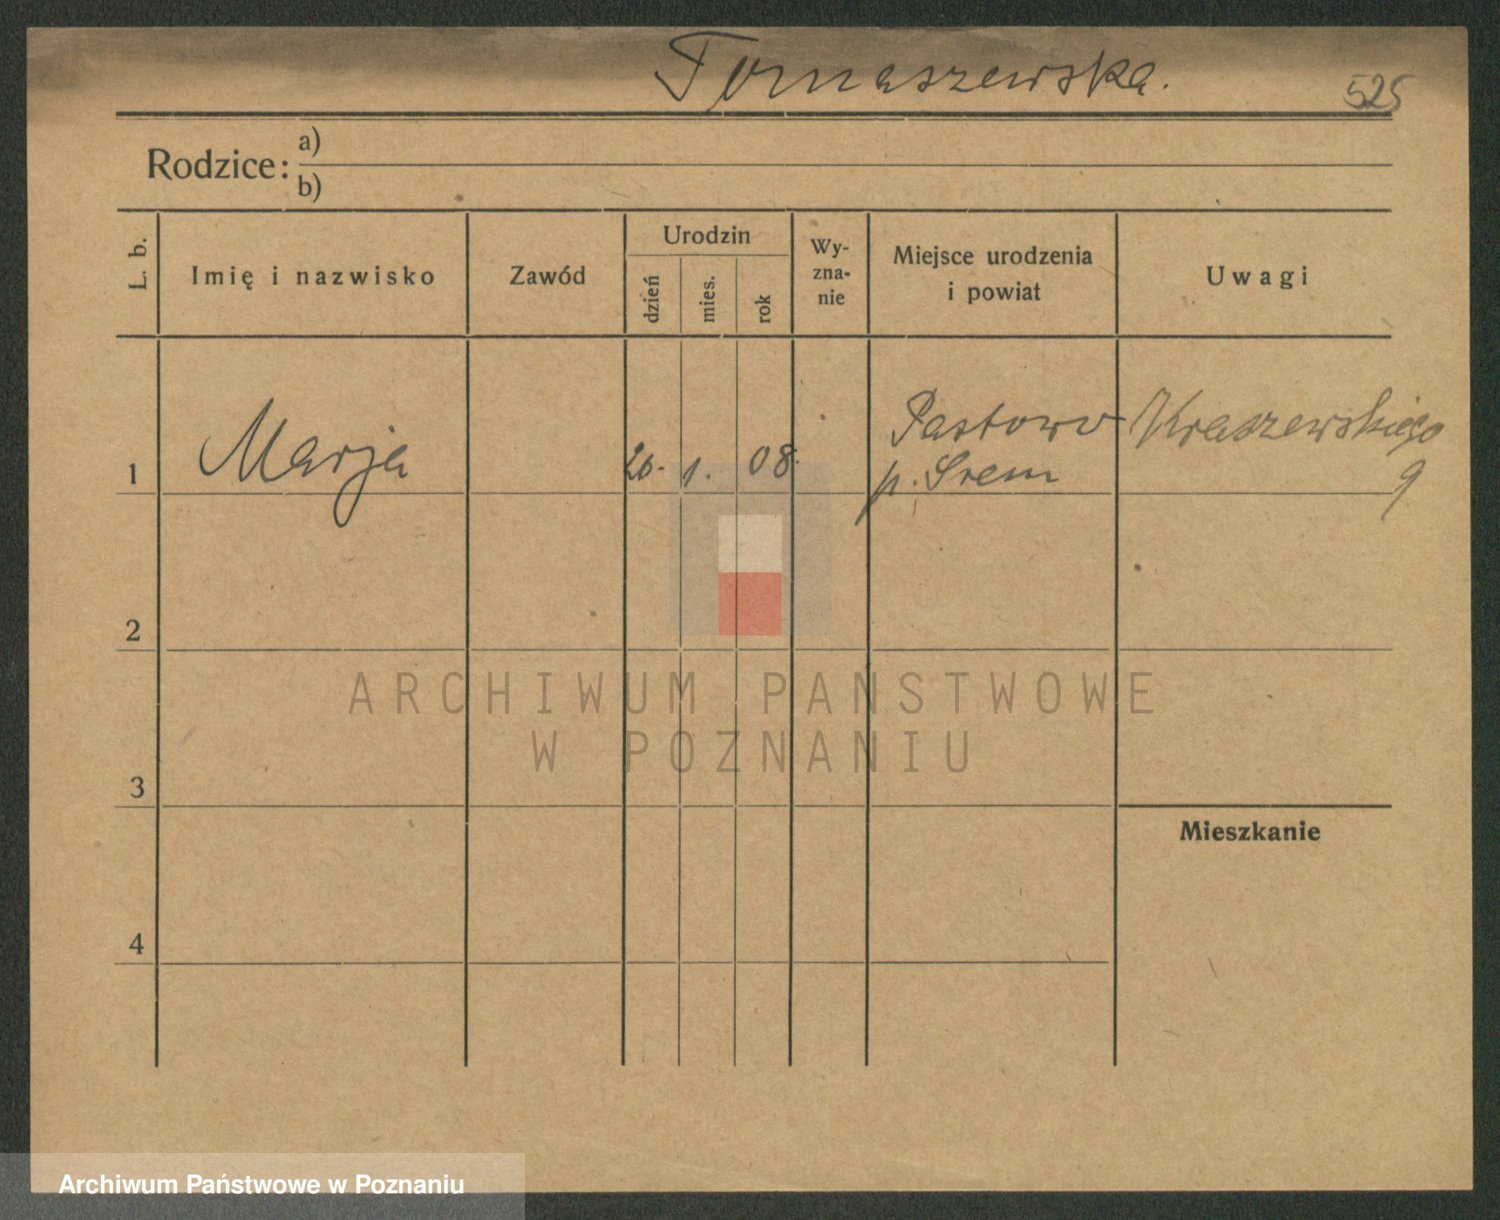 Tomaszewska.
525
Rodzice: a)
b)
L. b.
Imię i nazwisko
Zawód
Urodzin
dzień
mies.
rok
Wy-
zna-
nie
Miejsce urodzenia
i powiat
Uwagi
1
Marja
1.
08.
Pastowo
p. Srem
Kraszewskiego
9
2
3
4
Mieszkanie
ARCHIWUM PAŃSTWOWE
W POZNANIU
Archiwum Państwowe w Poznaniu